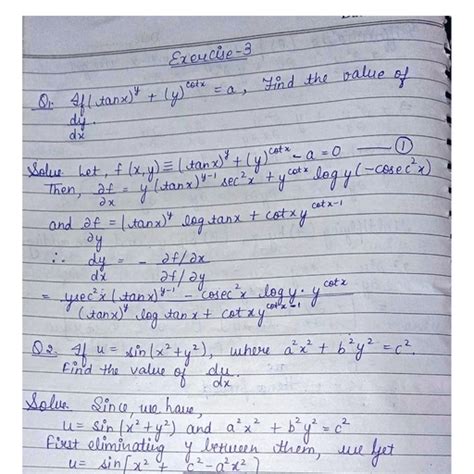 Exercise-3
Q1. If (tanx)^y + (y)^cotx = a, Find the value of
dy/dx
Solve. Let, f(x,y) ≡ (tanx)^y + (y)^cotx - a = 0 —— ①
Then, ∂f/∂x = y(tanx)^y-1 sec²x + y^cotx log y (-cosec²x)
and ∂f/∂y = (tanx)^y log tanx + cotx y^cotx-1
∴ dy/dx = - ∂f/∂x / ∂f/∂y
= ysec²x (tanx)^y-1 - cosec²x log y . y^cotx / (tanx)^y log tanx + cotx y^cotx-1
Q2. If u = sin(x²+y²), where a²x² + b²y² = c².
Find the value of du/dx.
Solve. Since, we have,
u = sin(x²+y²) and a²x² + b²y² = c²
First eliminating y between them, we get
u = sin[x² + c² - a²x²]